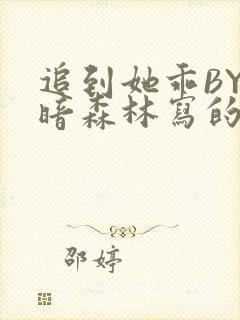 追到她乖BY
暗森林寫的
邵婷